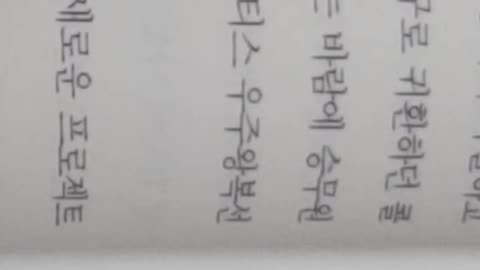 구로 귀환하던 콜
는 바람에 승무원
티스 우주왕복선
새로운 프로젝트